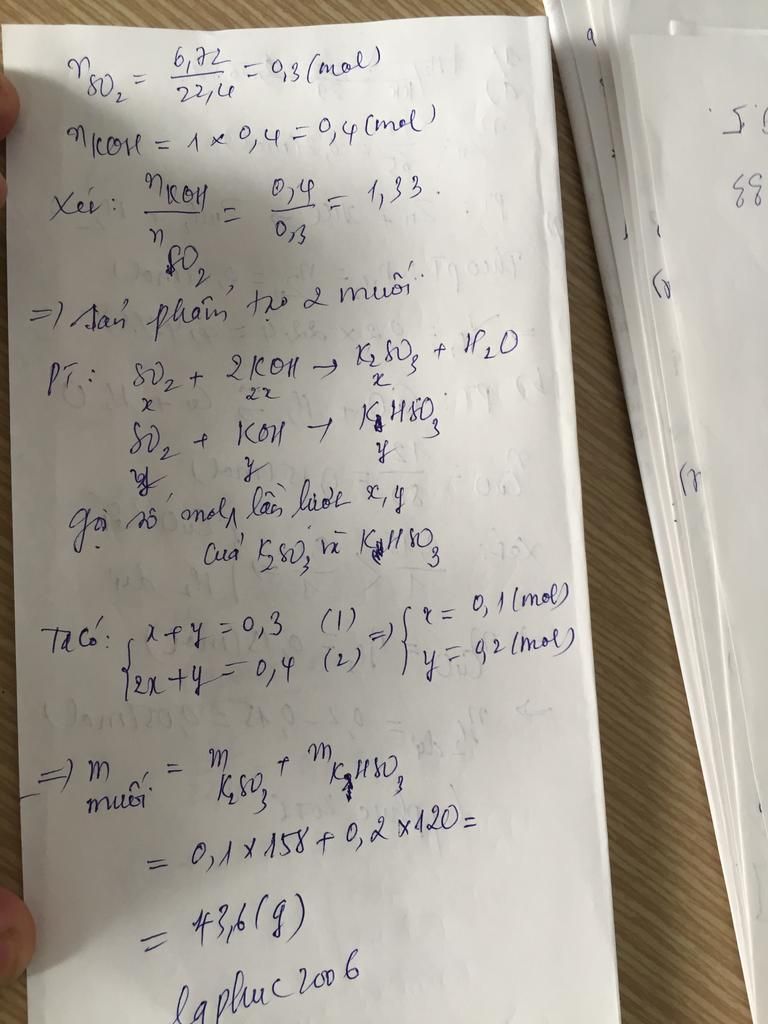 n SO2 = 6,72/22,4 = 0,3 (mol)
n KOH = 1 x 0,4 = 0,4 (mol)
Xét: nKOH/nSO2 = 0,4/0,3 = 1,33.
=> Sản phẩm tạo 2 muối.
PT: SO2 + 2KOH → K2SO3 + H2O
x 2x x
SO2 + KOH → KHSO3
y y y
Gọi số mol lần lượt x, y
của K2SO3 và KHSO3
Ta có: { x + y = 0,3 (1) => { x = 0,1 (mol)
2x + y = 0,4 (2) y = 0,2 (mol)
=> m muối = m K2SO3 + m KHSO3
= 0,1 x 158 + 0,2 x 120 =
= 43,6 (g)
laphuc2006